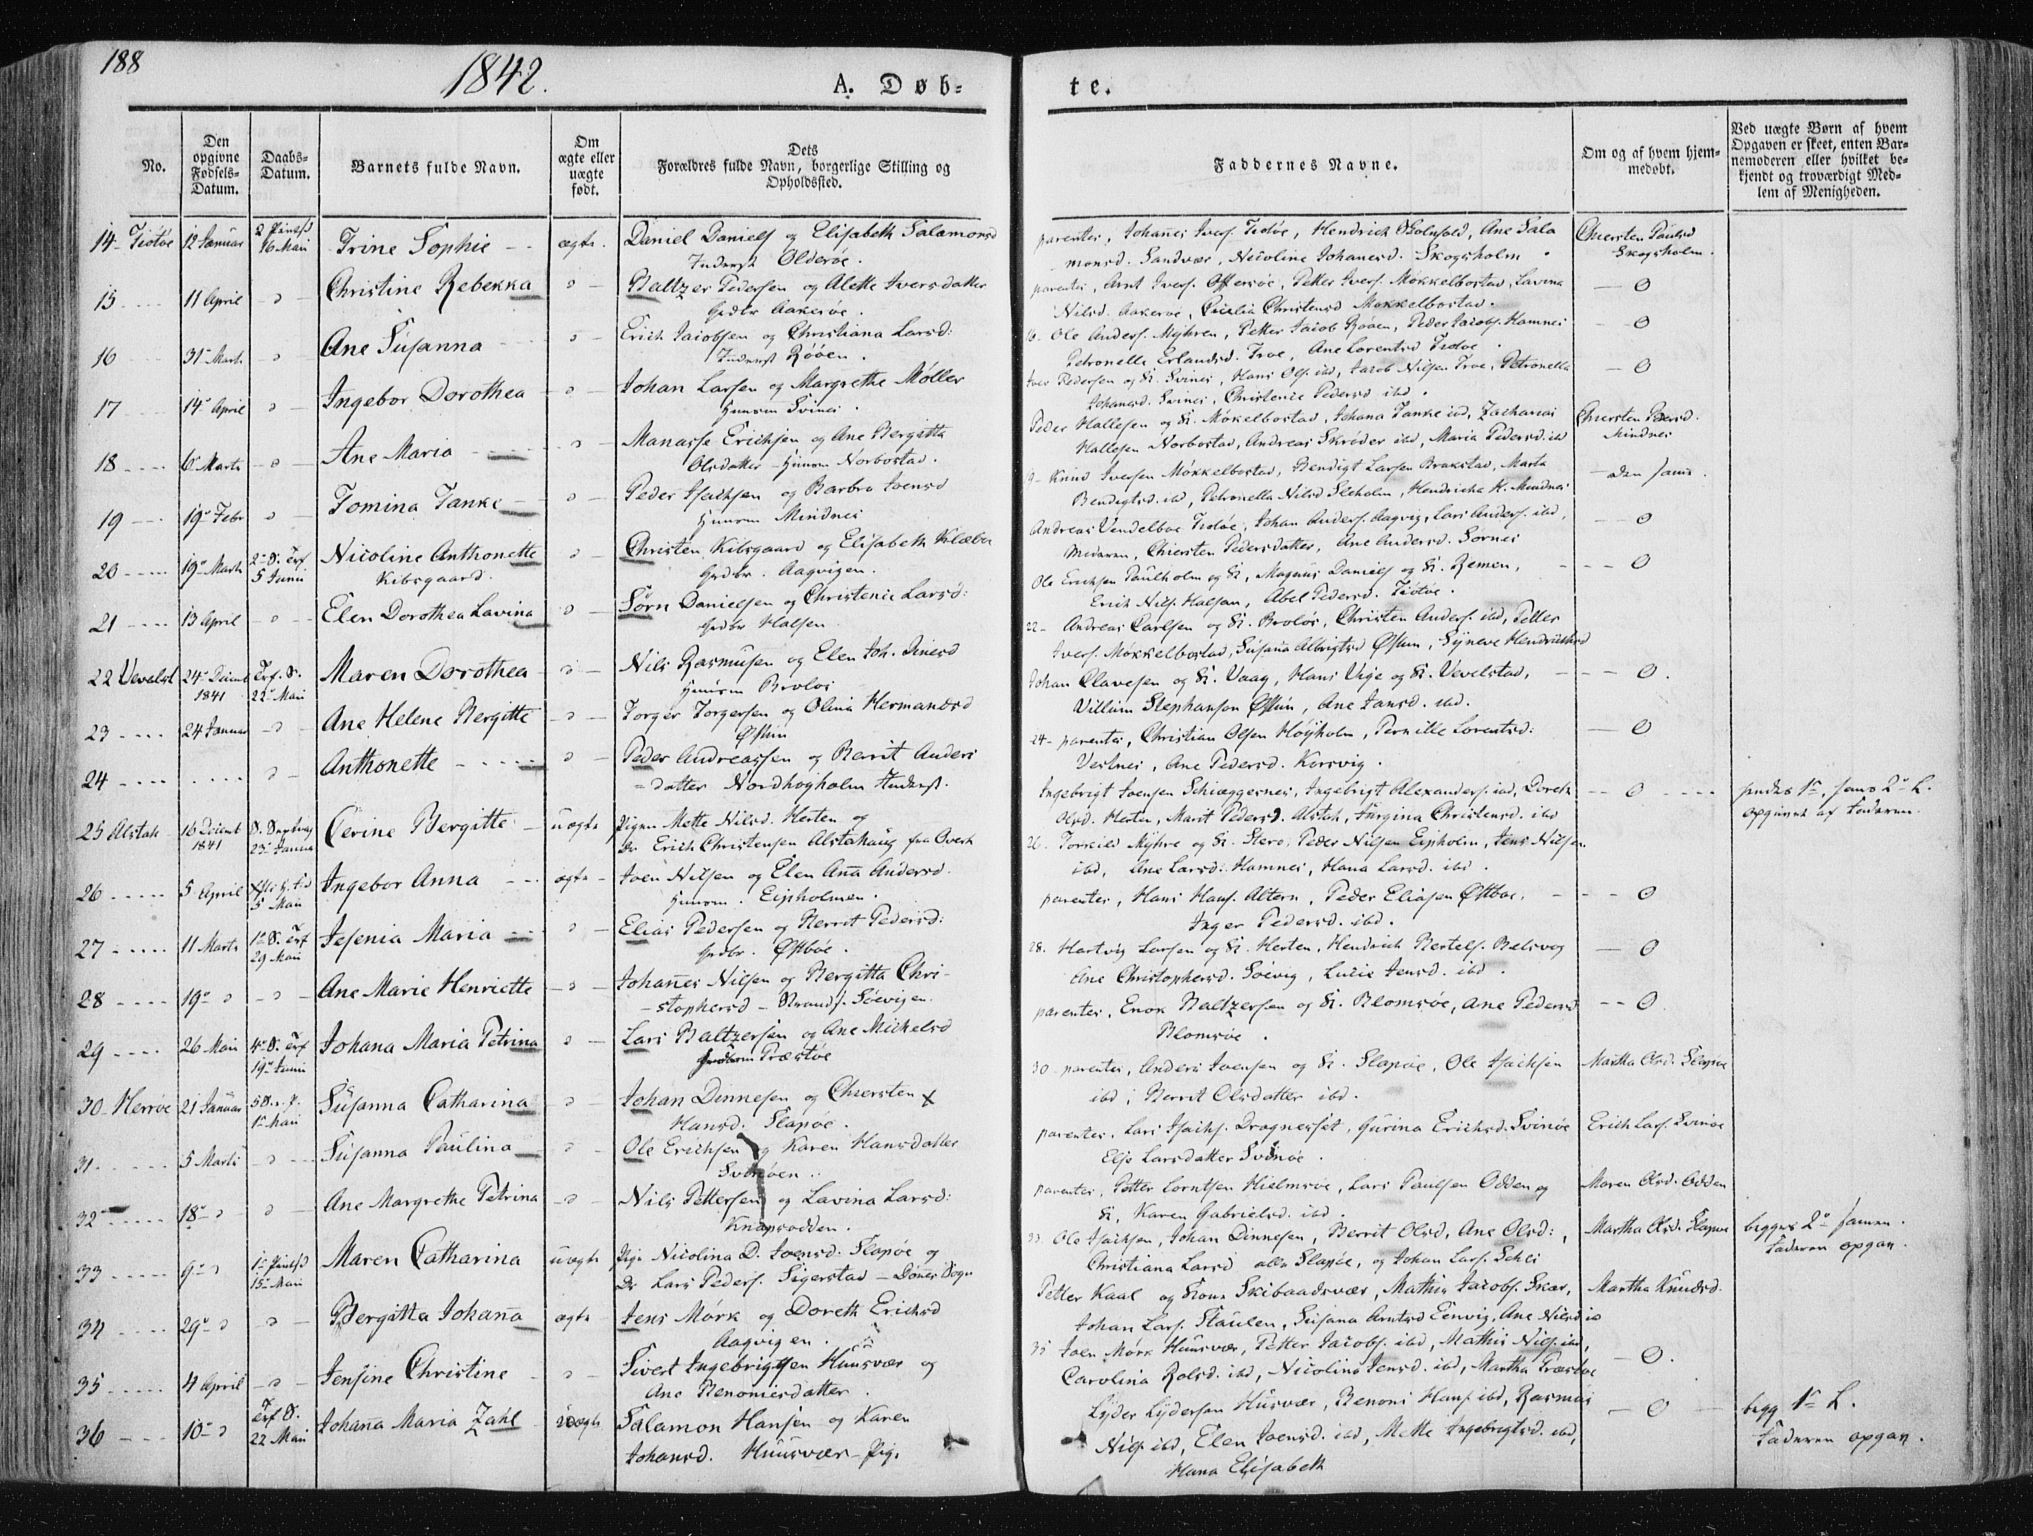 188
1842.
A. Døb-
te.
No.
Den opgivne Fødsels-Datum.
Daabs-Datum.
Barnets fulde Navn.
Om ægte eller uægte født.
Dets Forældres fulde Navn, borgerlige Stilling og Opholdssted.
Faddernes Navne.
Om og af hvem hjem-medøbt.
Ved uægte Børn af hvem Opgaven er skeet, enten Bar-nemoderen eller hvilket be-kjendt og troværdigt Med-lem af Menigheden.
14 - Tiøtøe 12 Januar 16 Mai Trine Sophie ægte. Daniel Daniels og Elisabeth Salamonsd
Inderst Olderøe.
parentes, Johanes Ivers. Tiøtøe, Hendrich Ane Sala
monsd. Sandvær, Nicoline Johanesd. Skogsholm.
Chiersten Paulsd
Skogsholm.
15 11 April Christine Rebekka Baltzer Pedersen og Alette Iversdatter
Grdbr Aakerøe.
parentes, Arnt Ivers. Offersøe, Petter Ivers. Møkkelbostad, Lavina
Nilsd. Aakerøe, Cicilia Christensd Møkkelbostad.
16 31 Marts Ane Susanna Erich Jacobsen og Christiana Larsd:
Inderst Røøen.
Ole Anders. Myhren, Petter Jacob Røøen, Peder Jacobs. Hamnes
Petronelle Erlandsd. Troe, Ane Lorentsd Tiøtøe.
17 14 April Ingebor Dorothea Johan Larsen og Margrethe Møller
Huusm Svines.
Iver Pedersen og K. Svines, Hans Ols. ibd, Jacob Nilsen Troe, Petronella
Johansd. Svines, Christence Pedersd ibd.
18 6 Marts Ane Maria Manasse Erichsen og Ane Bergitta
Olsdatter - Huusm Norbostad.
Peder Hallesen og K. Møkelbostad, Johana Tanke ibd, Zacharias
Hallesen Norbostad, Andreas Skrøder ibd, Maria Pedersd. ibd
Chiersten Pedersd.
Mindnes
19 19 Febr Tomina Tanke Peder Isachsen og Barbro Joensd
Huusm Mindnes
Knud Iversen Møkkelbostad, Bendigt Larsen Brakstad, Marta
Bendigtsd. ibd, Petronella Nilsd Sleholm, Hendricha H. Mindnes
den samme.
20 19 Marts 5 Junii Nicoline Anthonette
Kibsgaard.
Christen Kibsgaard og Elisabeth Klæboe
Grdbr. Aagvigen.
Andreas Vendelboe Tiøtøe, Johan Anders. Aagvig, Lars Anders. ibd,
Moderen, Chiersten Pedersdatter, Ane Andersd. Sørnes
21 13 April Elen Dorothea Lavina Sørn Danielsen og Christence Larsd:
Grdbr Halsen.
Ole Erichsen Paulholm og K, Magnus Daniels og K. Remen,
Erich Nils. Halsan, Abel Pedersd. Tiøtøe.
22 Vevelst 24 Decmb 1841 22 Mai Maren Dorothea Nils Rasmusen og Elen Joh. Dinesd
Huusm Broløs
Andreas Carlsen og K. Broløs, Christen Anders. ibd, Petter
Ivers. Møkkelbostad, Susana Albrigtsd Øsun, Syneve Hendrichsd
23 24 Januar Ane Helene Bergitte Torger Torgersen og Olina Hermandsd
Øsun
Johan Olavesen og K. Vaag, Hans Vige og K. Vevelstad,
Villum Stephanson Øsun, Ane Jansd. ibd.
24 Anthonette Peder Andreassen og Berit Anders
datter Nordhøyholm Inderst.
parentes, Christian Olsen Høyholm, Pernille Lorentsd:
Vestnes, Ane Pedersd. Korsvig.
25 Alstah 16 Decmbr 1841 23 Januar Cerine Bergitte uægte Pigen Mette Nilsd. Herten og
Erich Christensen Alstahaug fra
Ingebrigt Joensen Schiæggesnes, Ingebrigt Alexanders. ibd, Doreth
Olsd. Herten, Marit Pedersd. Alstah, Jurgina Christensd. ibd
opgivet af Faderen.
26 5 April 5 Mai Ingebor Anna ægte Joen Nilsen og Elen Ana Andersd.
Huusm. Eipholmen.
Torkild Myhre og K. Stero, Peder Nilsen Eipholm, Jens Nilsen
ibd, Ane Larsd: Hamnes, Hana Larsd. ibd.
27 11 Marts 29 Mai Jesenia Maria Elias Pedersen og Berrit Pedersd:
Grdbr. Østbøe.
parentes, Hans Hans. Altern, Peder Eliasen Østbøe,
Inger Pedersd. ibd.
28 19 Ane Marie Henriette Johanes Nilsen og Bergitta Chri-
stophersd - Strands. Søevigen.
Hartvig Larsen og K. Herten, Hendrich Bertels. Belsvog
Ane Christophersd. Søevig, Lucie Jensd. ibd.
29 26 Mai 19 Junii Johana Maria Petrina Lars Baltzersen og Ane Michelsd
Præstøe
parentes, Enok Baltzersen og K. Blomsøe, Ane Pedersd
Blomsøe.
30 Herrøe 21 Januar 1 Mai Susanna Catharina Johan Dinnesen og Chiersten
Hansd. Slapøe.
parentes, Anders Ivensen og K. Slapøe, Ole Isachsen
ibd, Berrit Olsdatter ibd.
Martha Olsd. Slapøe
31 5 Marts Susanna Paulina Ole Erichsen og Karen Hansdatter
Svinøen.
parentes. Lars Isachs. Dragneset, Gurina Erichsd. Svinøe
Else Larsdatter Svinøe.
Erich Lars. Svinøe
32 18 Ane Margrethe Petrina Nils Pettersen og Lavina Larsd:
Knapsodden.
parentes, Petter Lorntsen Hielmsøe, Lars Paulsen Odden og
K, Karen Gabrielsd. ibd.
Maren Olsd. Odden
33 9 15 Mai Maren Catharina uægte Pige Nicolina D. Joensd: Slapøe og
Lars Peders. Sigerstad - Dønes Sogn
Ole Isachsen, Johan Dinnesen, Berrit Olsd, Ane Olsd:,
Christiana Larsd alle Slapøe, og Johan Lars. Schei
Martha Olsd. Slapøe
begges 2
Faderen opgav.
34 29 Bergitta Johana ægte Jens Mørk og Doreth Erichsd
Aagvigen.
Petter Kaal og Kone Skibaadsvær, Mathis Jacobs. Skar,
Johan Lars. Staulen, Susana Arntsd Eenvig, Ane Nilsd
Martha Knudsd.
35 4 April Jensine Christine Sivert Ingebrigtsen Huusvær og
Ane Benoniesdatter.
Joen Mørk Huusvær, Petter Jacobs. ibd, Mathis Nils. ibd,
Carolina Rolsd. ibd, Nicolina Jensd. ibd, Martha Præstøe
36 10 22 Mai Johana Maria Zahl uægte Salamon Hansen og Karen
Johansd. Huusvær - Pige
Lyder Lydersen Husvær, Benoni Hans. ibd, Rasmus
Nils. ibd, Elen Joensd. ibd, Mette Ingebrigtsd. ibd,
Hana Elisabeth
begg 1 L.
Faderen opgav.